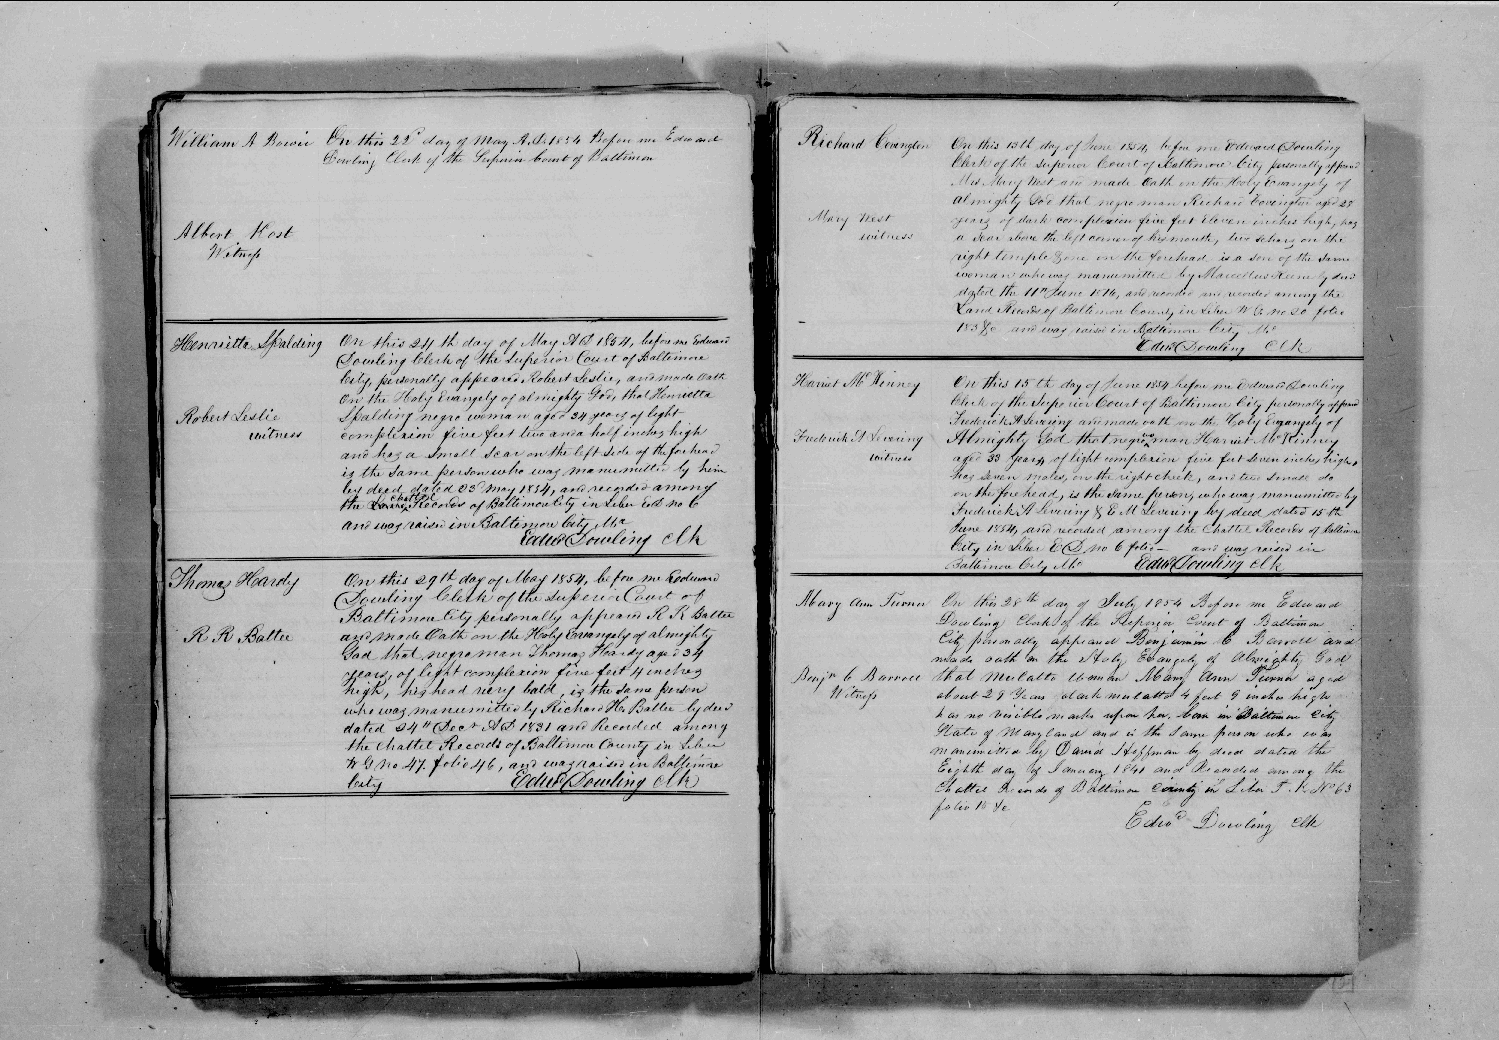 William A Bowie
On this 22d day of May A.D. 1854 Before me Edward
Dowling Clerk of the Superior Court of Baltimore
Albert Host
Witness
Henrietta Spalding
On this 24th day of May A D 1854, before me Edward
Dowling Clerk of the Superior Court of Baltimore
City, personally appeared Robert Leslie, and made Oath
On the Holy Evangely of almighty God, that Henrietta
Spalding negro woman aged 34 years of light
Robert Leslie
witness
complexion five feet two and a half inches high
and has a small scar on the left side of the forhead
is the same person who was manumitted by him
by deed dated 23d May 1854, and recorded among
the Chattel Records of Baltimore City in Liber E D no 6
and was raised in Baltimore City Md
Edwd Dowling Clk
Thomas Hardy
On this 29th day of May 1854, before me Eedward
Dowling Clerk of the Superior Court of
Baltimore City personally appeared R R Battee
R R Battee
and made Oath on the Holy Evangely of almighty
God that negro man Thomas Hardy aged 34
years, of light complexion five feet 4 inches
high, his head very bald, is the same person
who was manumitted by Richard H. Battee by deed
dated 24th Decr A D 1831 and Recorded among
the Chattel Records of Baltimore County in Liber
W G no 47 folio 46, and was raised in Baltimore
City Edwd Dowling Clk
Richard Covington
On this 13th day of June 1854, before me Edward Dowling
Clerk of the Superior Court of Baltimore City personally appeared
Mrs Mary West and made Oath on the Holy Evangely of
almighty God that negro man Richard Covington aged 28
Mary West
witness
years of dark complexion five feet Eleven inches high, has
a scar above the left corner of his mouth, two scars on the
right temple & one on the forehead is a son of the same
woman who was manumitted by Marcellus Keene by deed
dated the 11th June 1816, and recorded and recorded among the
Land Records of Baltimore County in Liber W G no 20 folio
183 &c and was raised in Baltimore City Md
Edwd Dowling Clk
Harriet McKinney
On this 15th day of June 1854 before me Edward Dowling
Clerk of the Superior Court of Baltimore City personally appeared
Frederick A Levering and made oath on the Holy Evangely of
Frederick A Levering
witness
Almighty God that negro woman Harriet McKinney
aged 33 years, of light complexion five feet seven inches high,
has seven moles, on the right cheek, and two small do
on the forehead, is the same person, who was manumitted by
Frederick A Levering & E M Levering by deed dated 15th
June 1854, and recorded among the Chattel Records of Baltimore
City in Liber E D no 6 folio — and was raised in
Baltimore City Md Edwd Dowling Clk
Mary Ann Turner
On this 28th day of July 1854 Before me Edward
Dowling Clerk of the Superior Court of Baltimore
City personally appeared Benjamin C Barroll and
made oath on the Holy Evangely of Almighty God
Benjn C Barroll
Witness
that mulatto woman Mary Ann Turner aged
about 29 Years dark mulatto 4 feet 9 inches high
has no visible marks upon her, born in Baltimore City
State of Maryland and is the same person who was
manumitted by David Hoffman by deed dated the
Eighth day of January 1841 and Recorded among the
Chattel Records of Baltimore County in Liber T. K No 63
folio 15 &c
Edwd Dowling Clk